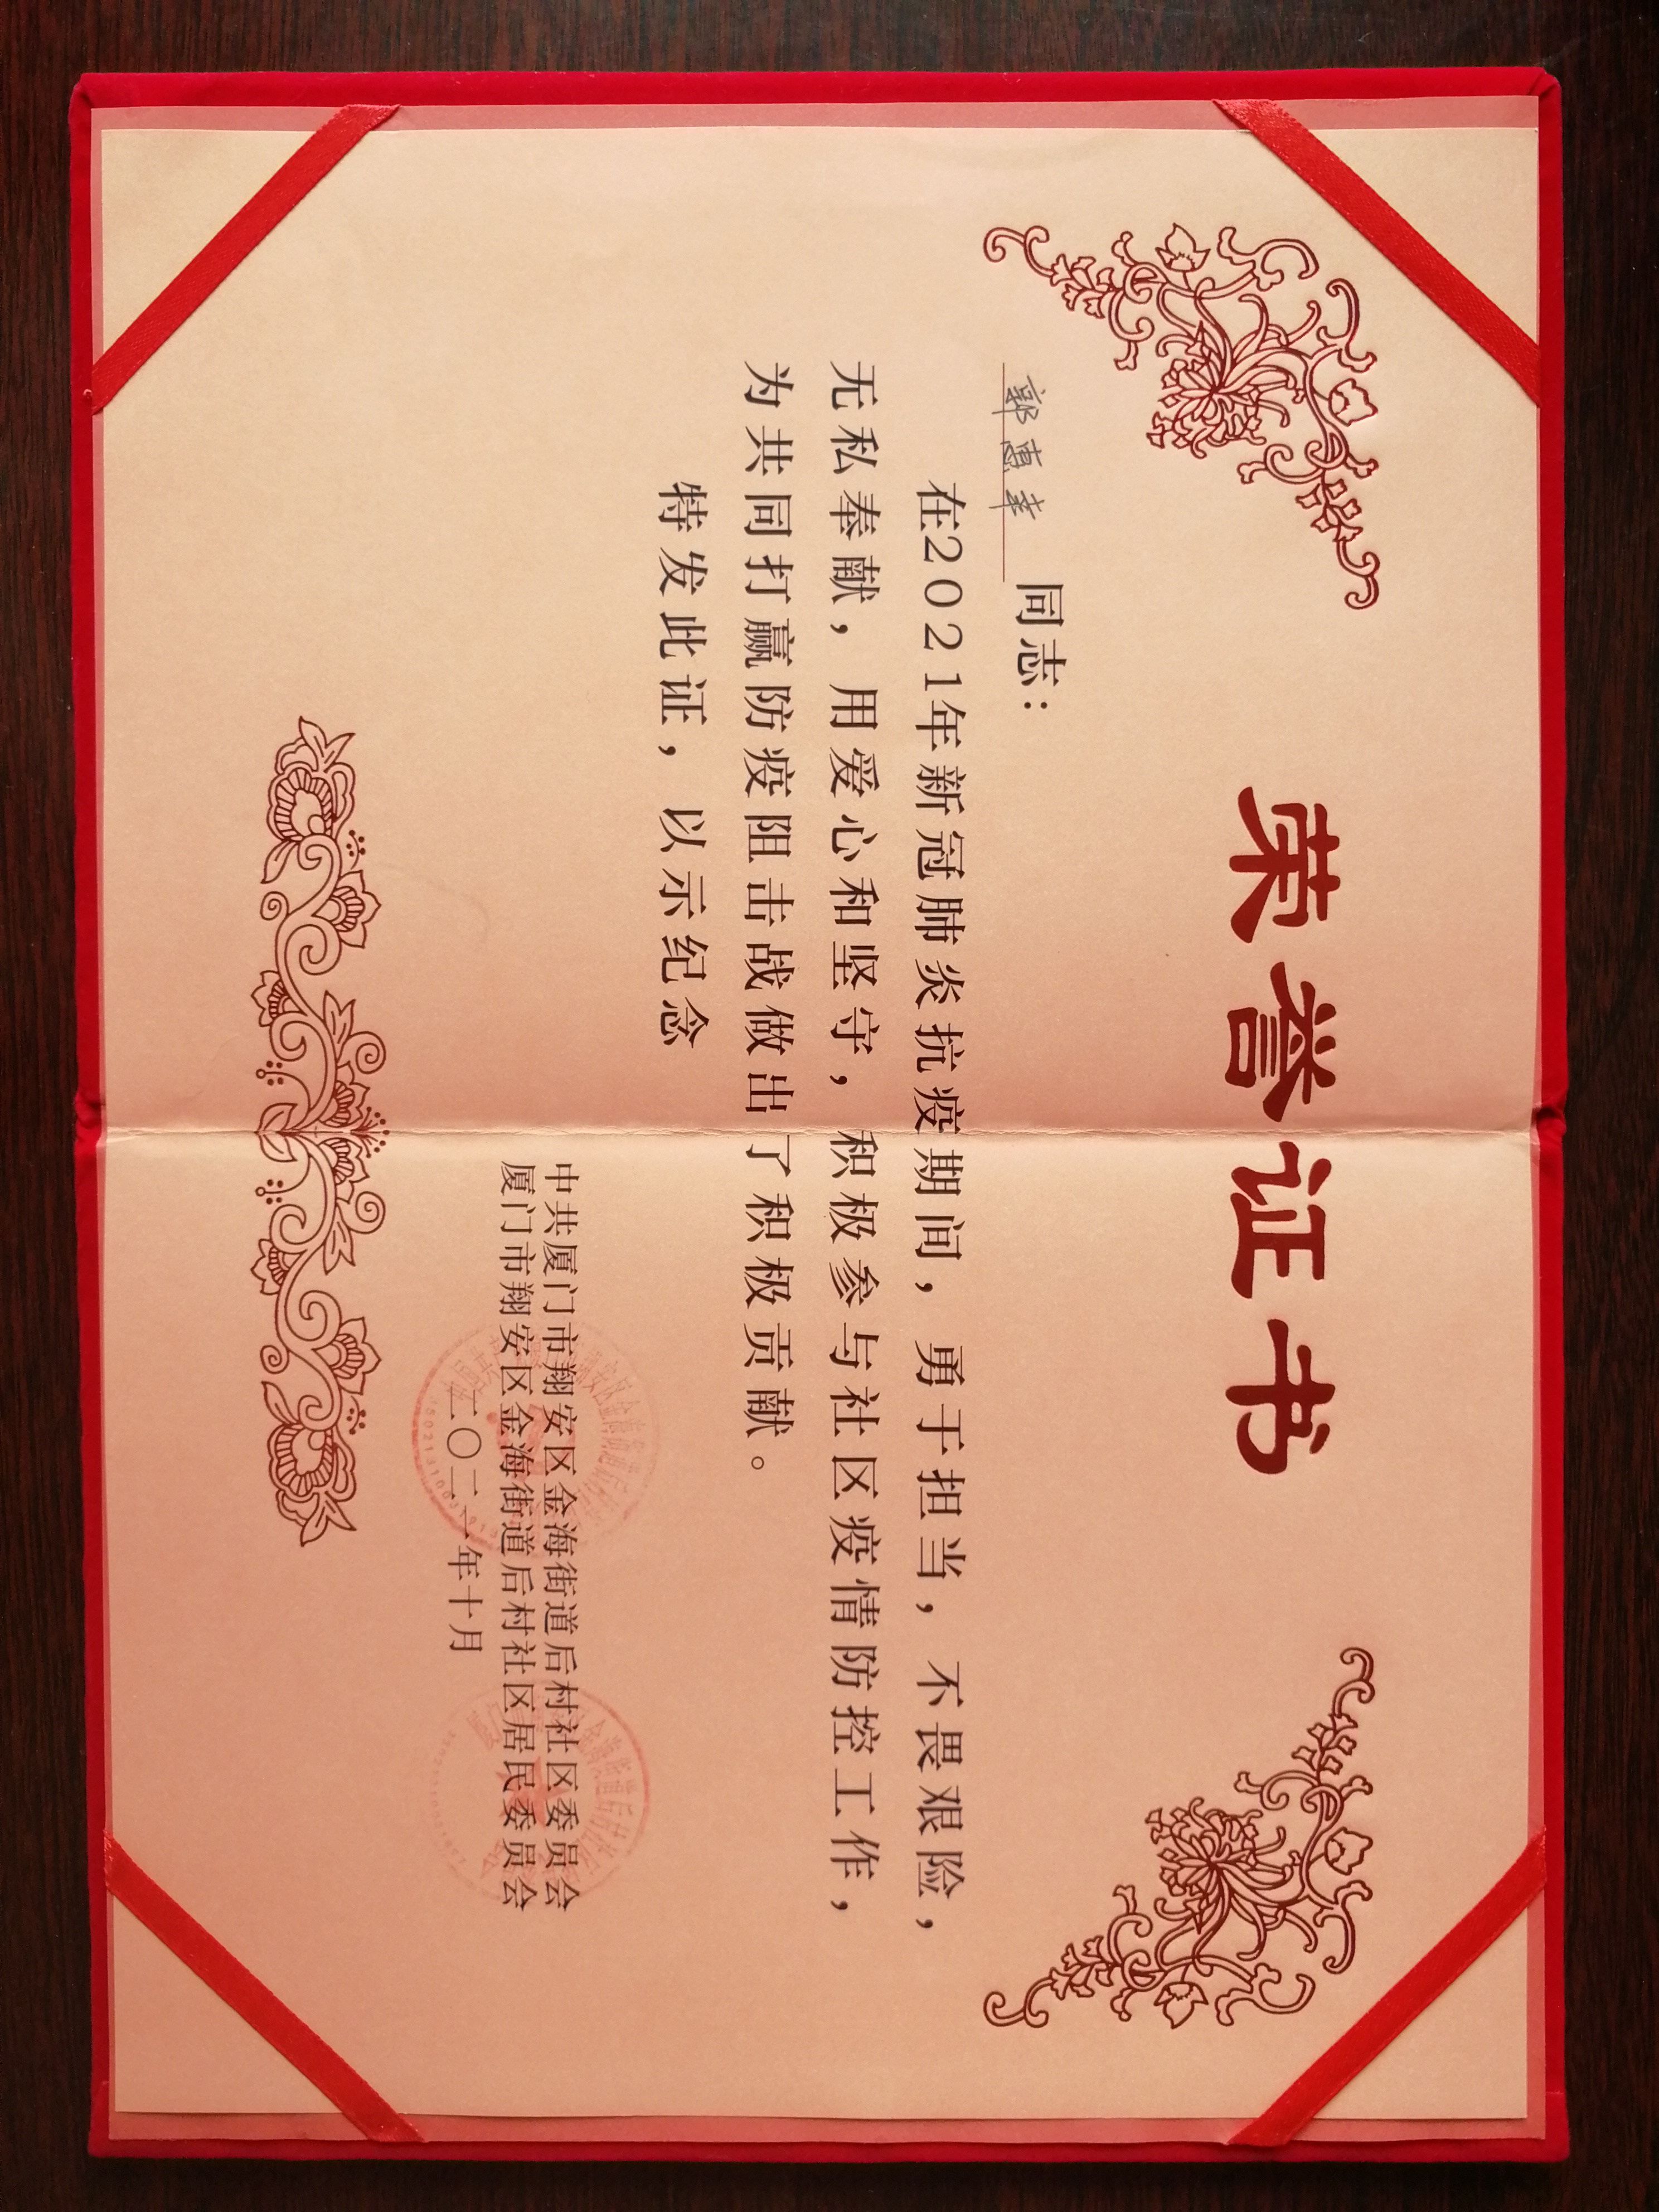 荣誉证书
郭惠幸 同志：
在2021年新冠肺炎抗疫期间，勇于担当，不畏艰险，
无私奉献，用爱心和坚守，积极参与社区疫情防控工作，
为共同打赢防疫阻击战做出了积极贡献。
特发此证，以示纪念
中共厦门市翔安区金海街道后村社区委员会
厦门市翔安区金海街道后村社区居民委员会
二〇二一年十月